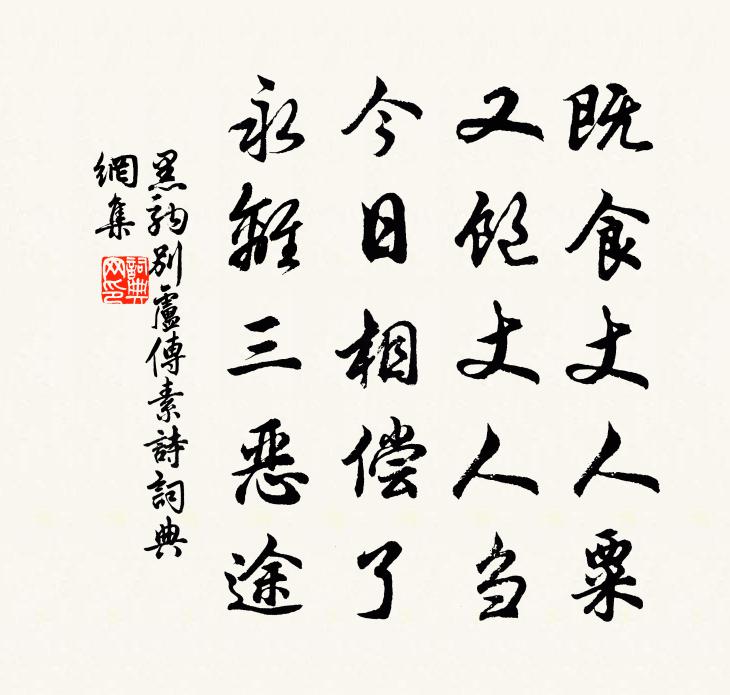 既食丈人粟
又飽丈人刍
今日相偿了
永離三惡途
黑駒別盧傳素詩詞典
網集
詞典網印